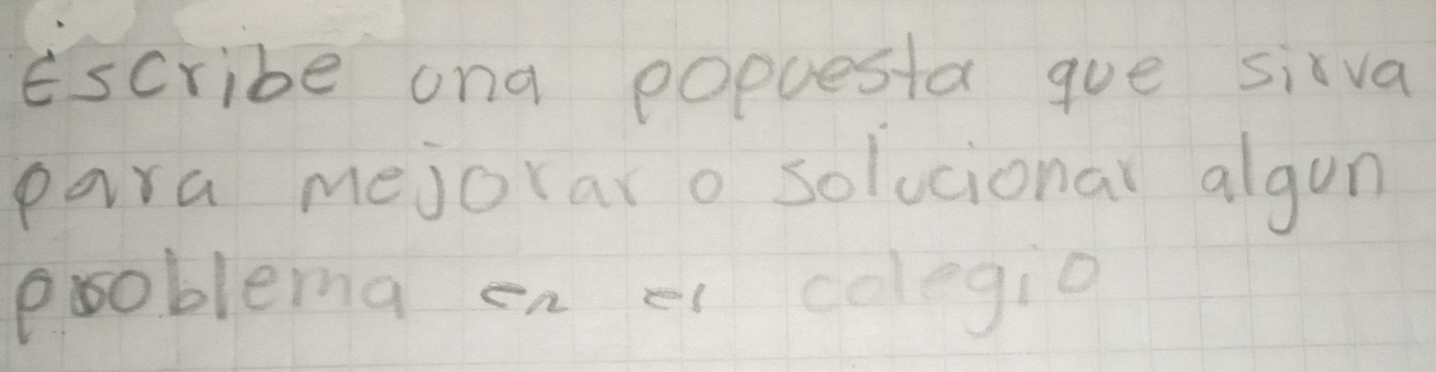 Escribe una popuesta que sirva
para mejorar o solucionar algun
problema en el colegio